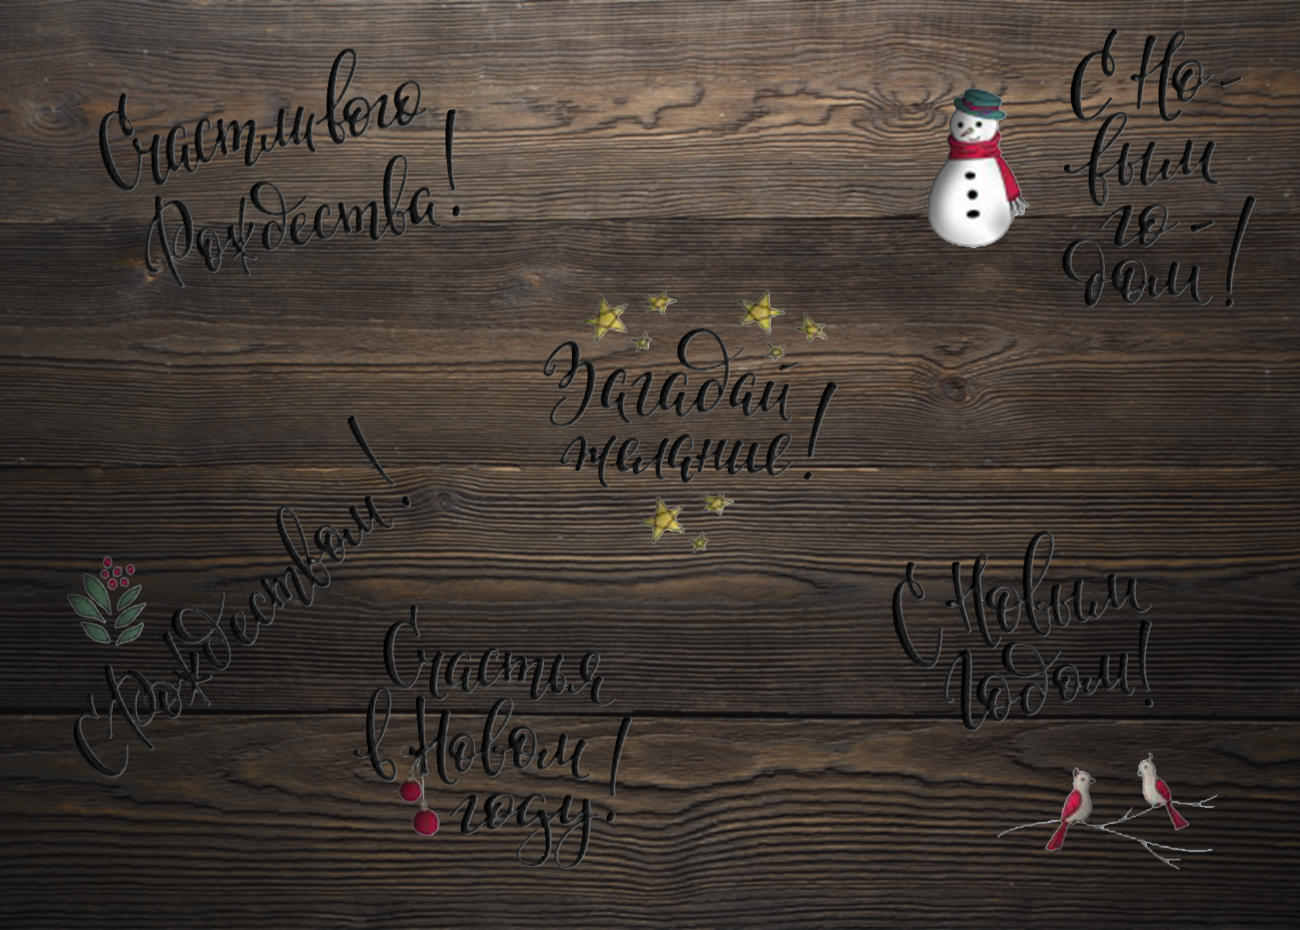 Счастливого
Рождества!
С Но-
вым
го-
дом!
Загадай
желание!
С Рождеством!
Счастья
в Новом
году!
С Новым
годом!